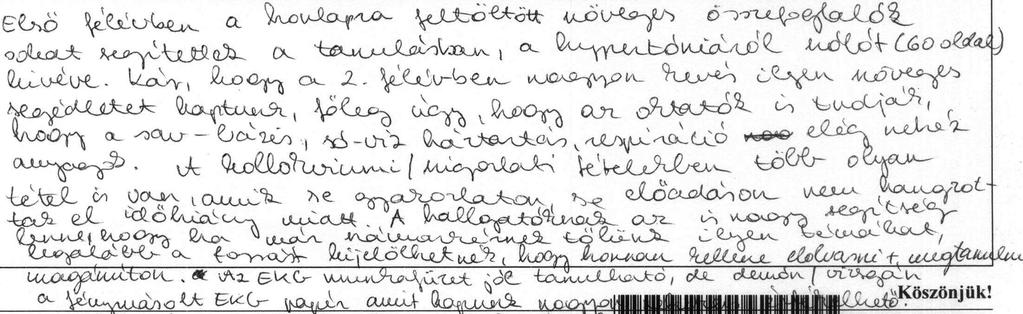 Első félévben a honlapra feltöltött szöveges összefoglalók
sokat segítettek a tanulásban, a hypertóniáról szólót (60 oldal)
kivéve. Kár, hogy a 2. félévben nagyon kevés ilyen szöveges
segédletet kaptunk, főleg úgy, hogy az oktatók is tudják,
hogy a sav-bázis, só-víz háztartás, respiráció elég nehéz
anyagok. A kollokviumi/szigorlati tételekben több olyan
tétel is van, amik se gyakorlaton, se előadáson nem hangzot-
tak el időhiány miatt. A hallgatóknak az is nagy segítség
lenne, hogy ha már számonkérnek tőlünk ilyen témákat,
legalább a forrást kijelölhetnék, hogy honnan kellene elolvasni + megtanulni
magánúton. Az EKG munkafüzet jól tanulható, de demón/vizsgán
a fénymásolt EKG papír amit kapunk nagyon
Köszönjük!